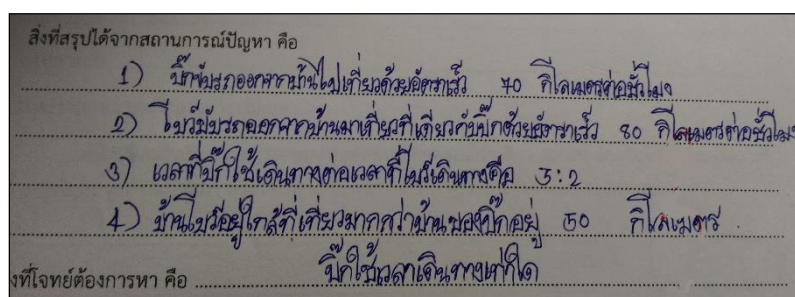 สิ่งที่สรุปได้จากสถานการณ์ปัญหา คือ
1) บิ๊กขับรถออกจากบ้านไปเที่ยวด้วยอัตราเร็ว 70 กิโลเมตรต่อชั่วโมง
2) ไบร์ทขับรถออกจากบ้านมาเที่ยวที่เดียวกับบิ๊กด้วยอัตราเร็ว 80 กิโลเมตรต่อชั่วโมง
3) เวลาที่บิ๊กใช้เดินทางต่อเวลาที่ไบร์ทเดินทางคือ 3:2
4) บ้านไบร์ทอยู่ใกล้ที่เที่ยวมากกว่าบ้านของบิ๊กอยู่ 50 กิโลเมตร
งที่โจทย์ต้องการหา คือ บิ๊กใช้เวลาเดินทางเท่าใด